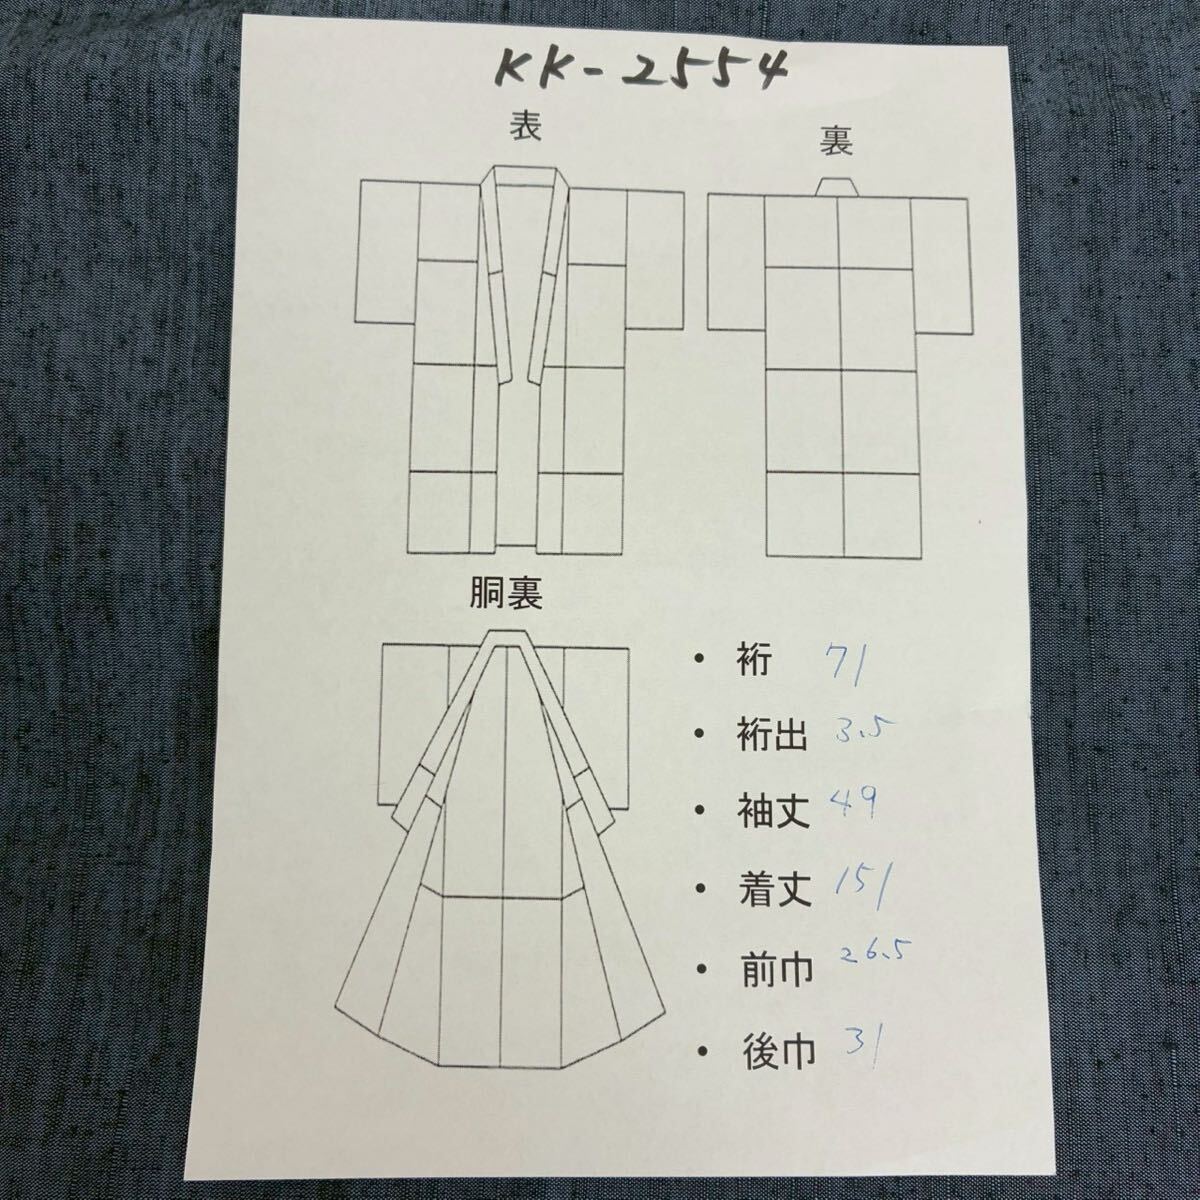 KK-2554
表
裏
胴裏
・裄 71
・裄出 3.5
・袖丈 49
・着丈 151
・前巾 26.5
・後巾 31